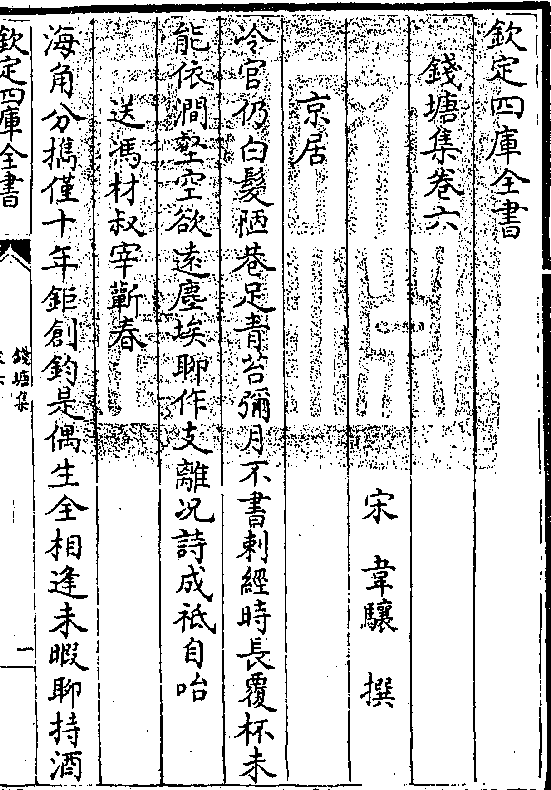 欽定四庫全書
錢塘集卷六
宋 韋驤 撰
京居
冷官仍白髮陋巷足青苔彌月不書刺經時長覆杯未
能依澗壑空欲遠塵埃聊作支離况詩成祇自咍
送馮材叔宰蘄春
海角分攜僅十年鉅創鈞是偶生全相逢未暇聊持酒
欽定四庫全書
錢塘集
卷六
一